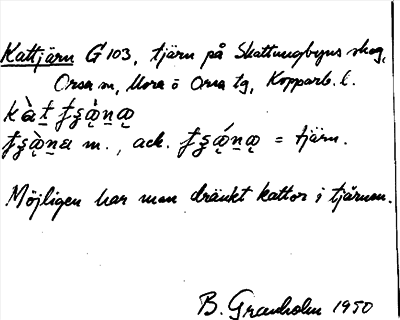 Kattjärn G 103, tjärn på Skattungbyns skog,
Orsa sn, Mora o Orsa tg, Kopparb. l.
m., ack. = tjärn.
Möjligen har man dränkt kattor i tjärnen.
B. Granholm 1950